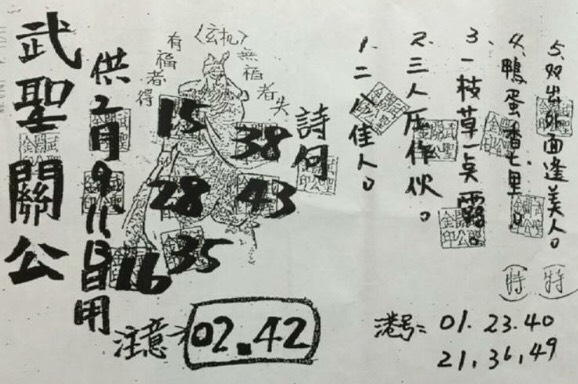 武聖關公
供2月9,11,13日用
〈玄机〉
有福者得
無福者失
15
38
28
43
35
16
注意
02.42
詩句
1、二八佳人。
2、三人压作伙。
3、一枝草一点露。
4、鴨蛋香七里。(特)
5、双出外面逢美人。(特)
港号=01.23.40
21,31,49